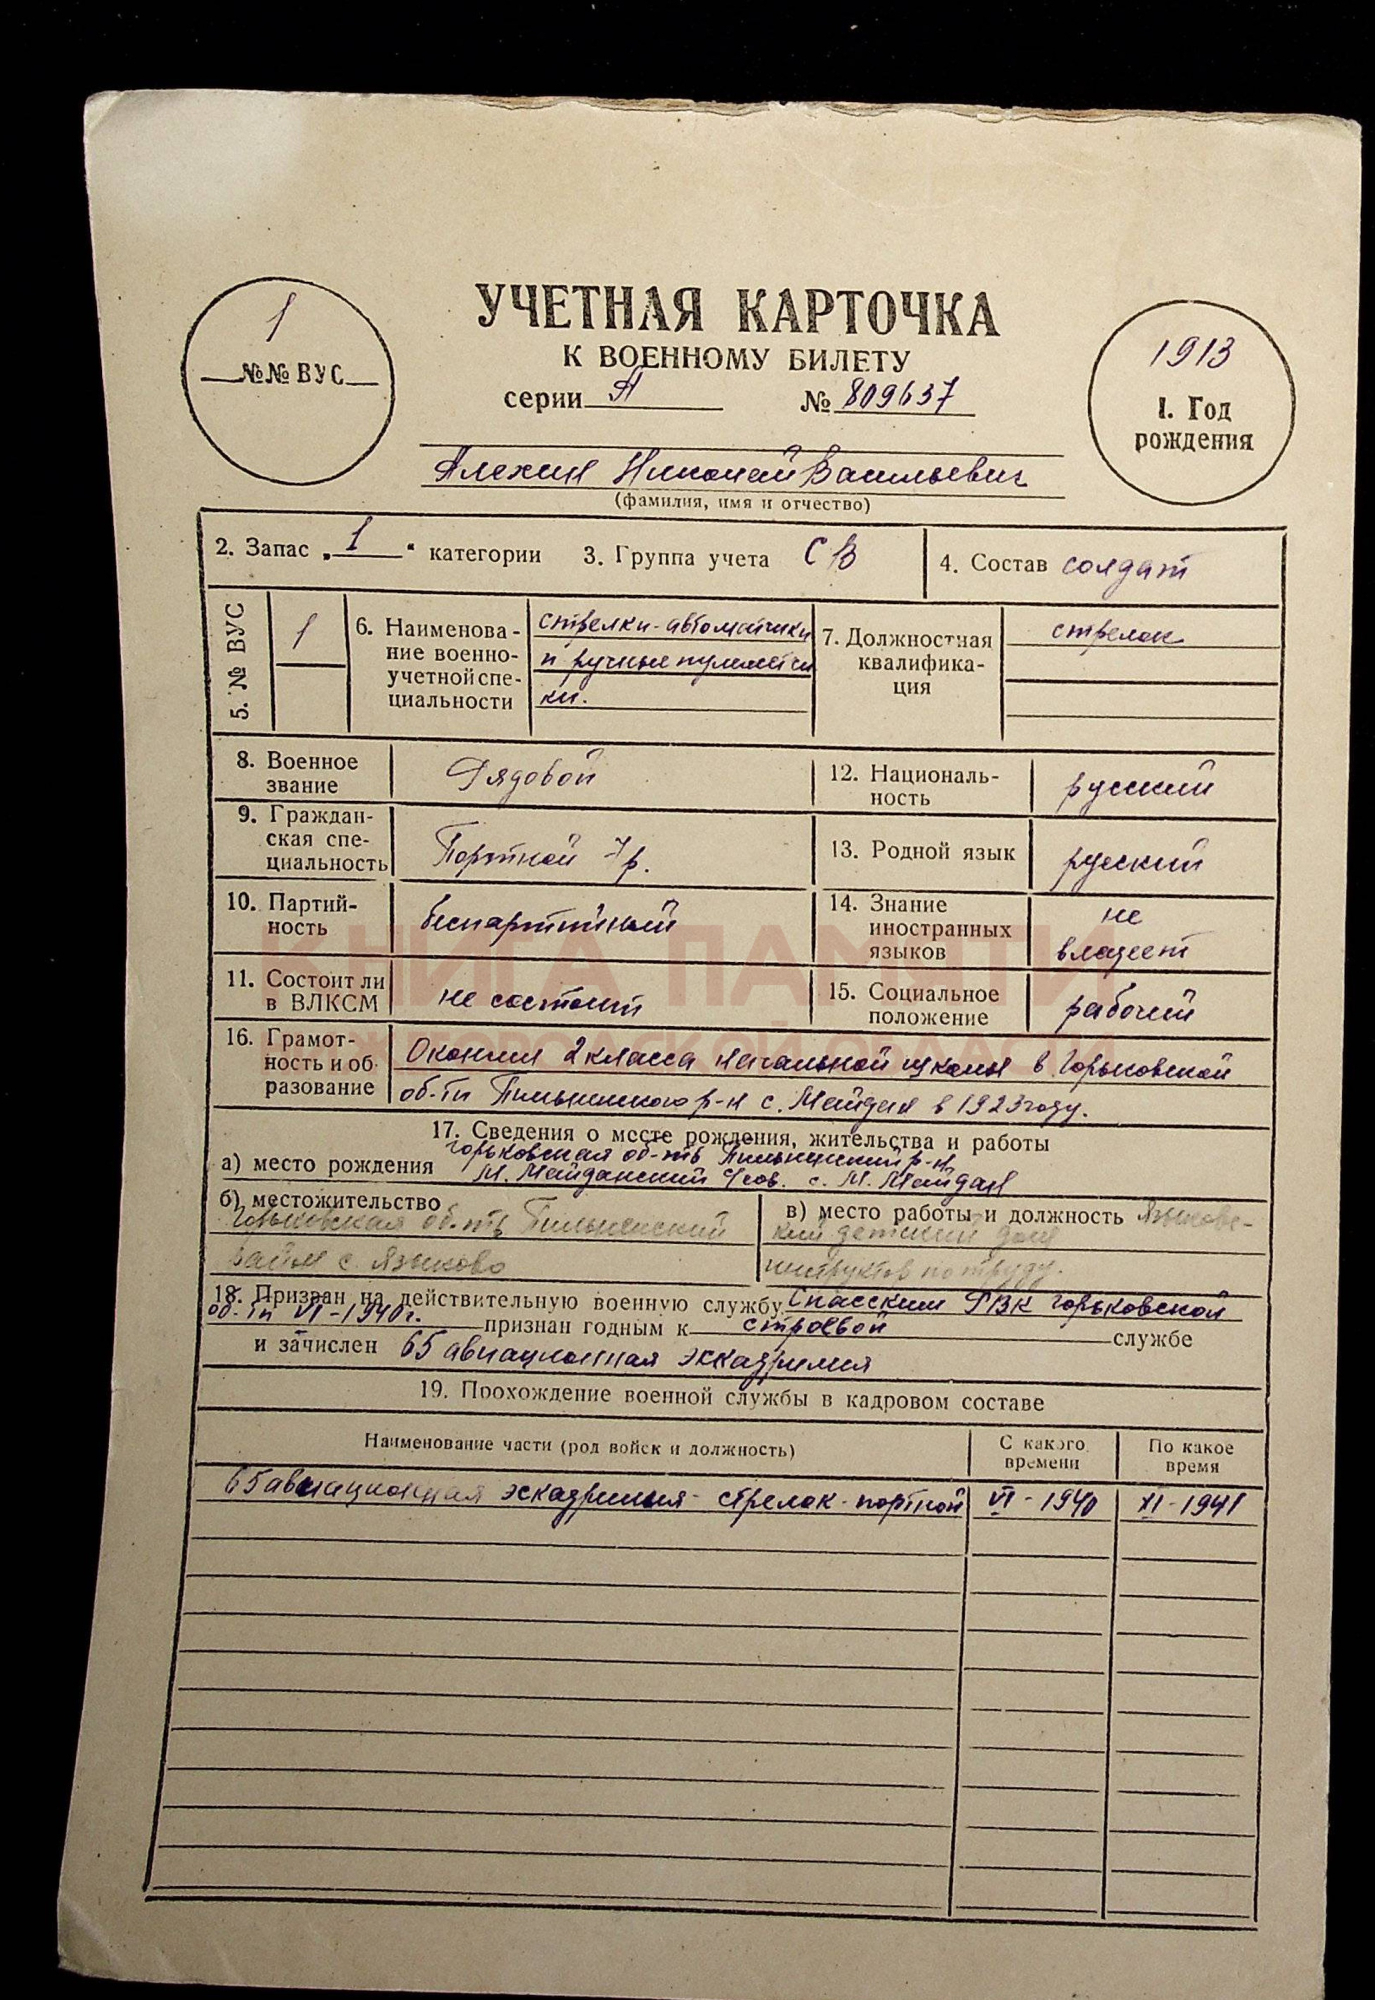 УЧЕТНАЯ КАРТОЧКА
К ВОЕННОМУ БИЛЕТУ
серии А № 809637
1
№№ ВУС
1913
1. Год
рождения
Алехин Николай Васильевич
(фамилия, имя и отчество)
2. Запас „1“ категории 3. Группа учета СВ 4. Состав солдат
5. № ВУС 1
6. Наименова-
ние военно-
учетной спе-
циальности
стрелки-автоматчики
и ручные пулеметчи
ки.
7. Должностная
квалифика-
ция
стрелок
8. Военное
звание
Рядовой
12. Националь-
ность
русский
9. Граждан-
ская спе-
циальность
Портной 7 р.
13. Родной язык
русский
10. Партий-
ность
беспартийный
14. Знание
иностранных
языков
не
владеет
КНИГА ПАМЯТИ
НИЖЕГОРОДСКОЙ ОБЛАСТИ
11. Состоит ли
в ВЛКСМ
не состоит
15. Социальное
положение
рабочий
16. Грамот-
ность и об
разование
Окончил 2 класса начальной школы в Горьковской
об-ти Пильнинского р-н с. Майдан в 1923 году.
17. Сведения о месте рождения, жительства и работы
а) место рождения Горьковская об-ть Пильнинский р-н
М. Майданский с/сов. с. М. Майдан
б) местожительство
Горьковская об-ть Пильненский
район с. Языково
в) место работы и должность Языковс-
кий детский дом
инструктор по труду.
18. Призван на действительную военную службу Спасским РВК Горьковской
об-ти VI-1940г. признан годным к строевой службе
и зачислен 65 авиационная эскадрилия
19. Прохождение военной службы в кадровом составе
Наименование части (род войск и должность)
С какого
времени
По какое
время
65 авиационная эскадрилия - стрелок-портной VI-1940 XI-1941